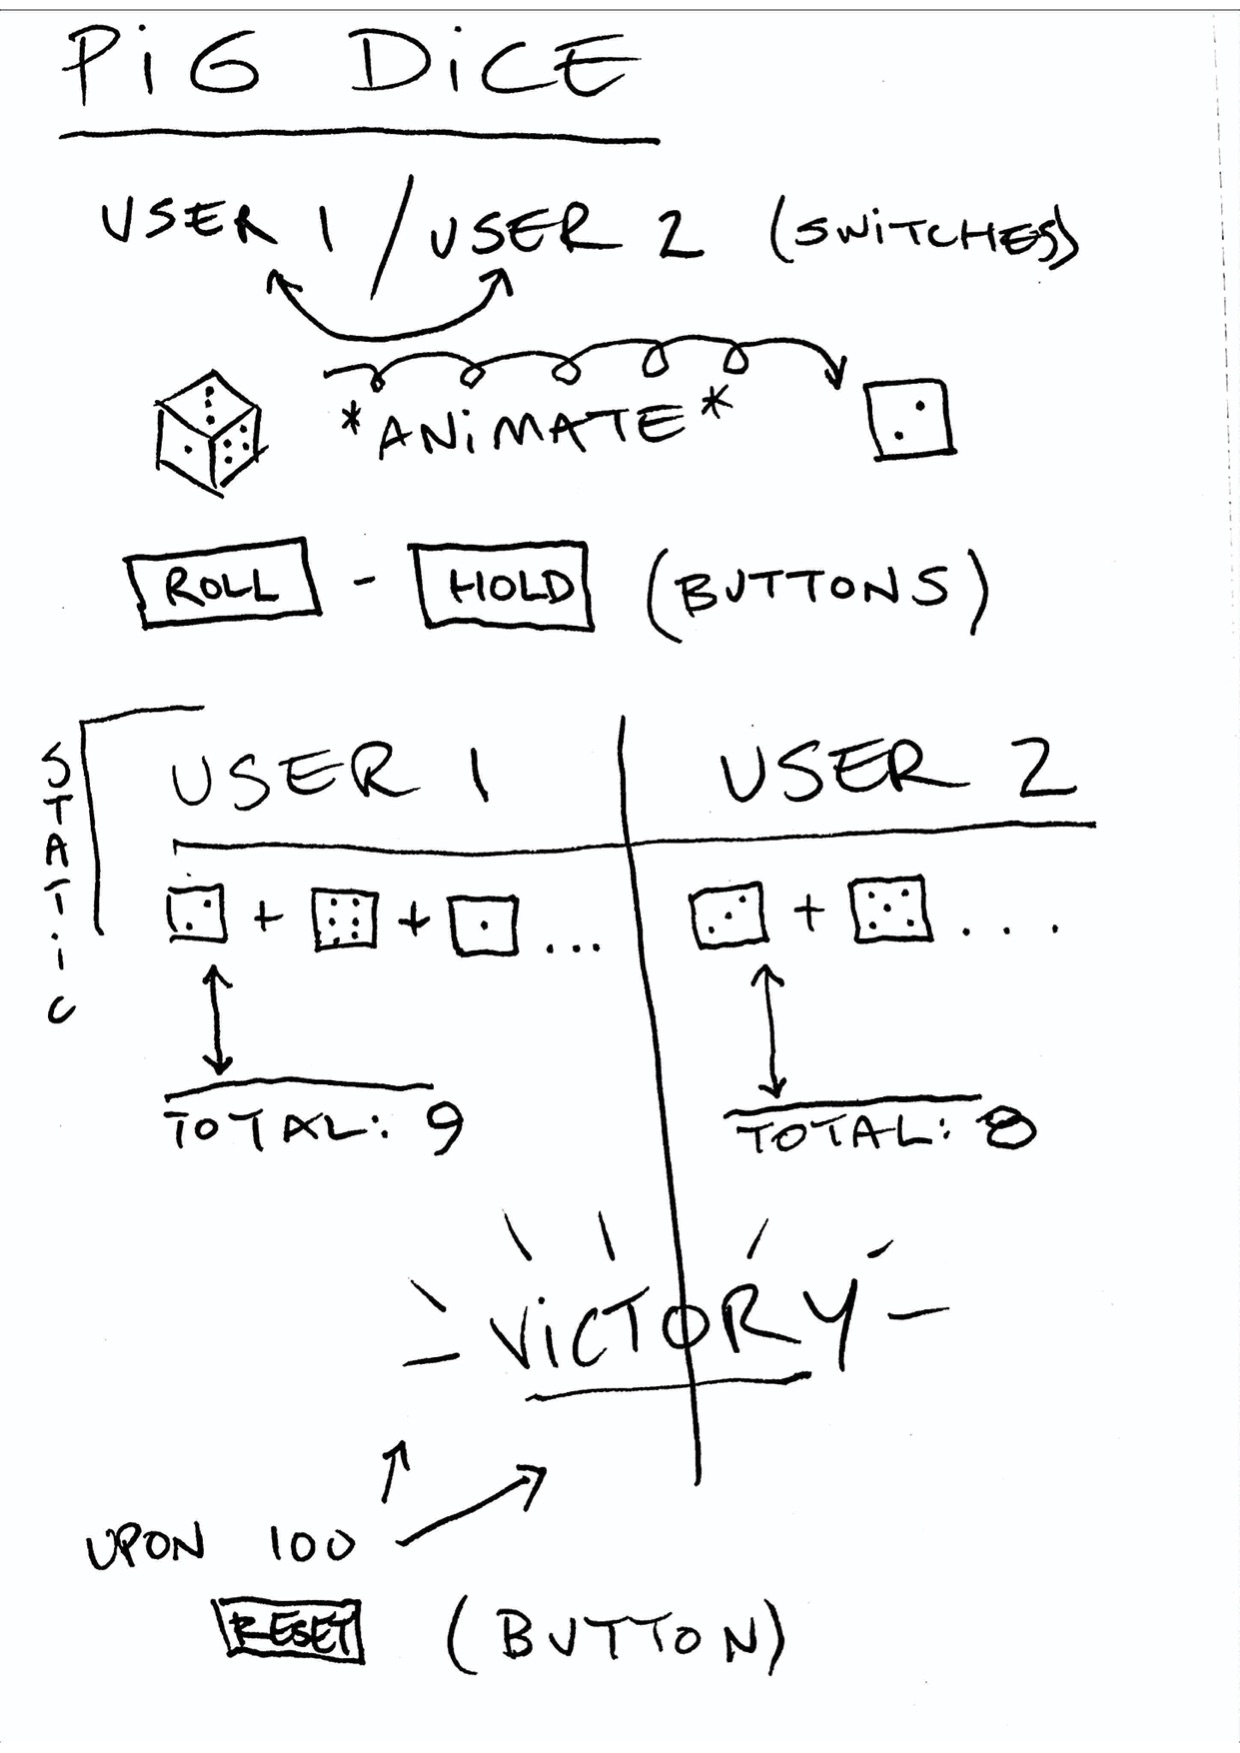 PiG DiCE
USER 1 / USER 2 (SWiTCHES)
*ANiMATE*
ROLL - HOLD (BUTTONS)
STATiC
USER 1 USER 2
+ + ... + ....
TOTAL: 9 TOTAL: 8
ViCTORY
UPON 100
RESET (BUTTON)